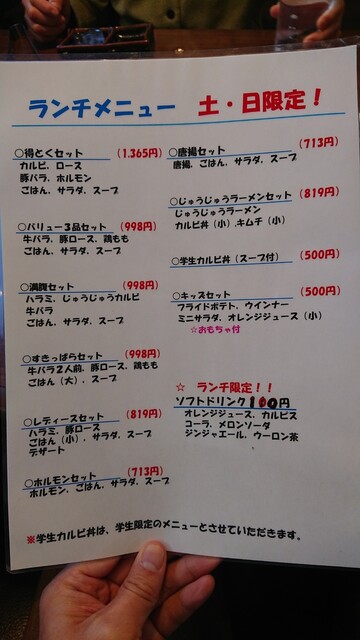 ランチメニュー 土・日限定！
○得とくセット (1.365円)
カルビ、ロース
豚バラ、ホルモン
ごはん、サラダ、スープ
○バリュー3品セット (998円)
牛バラ、豚ロース、鶏もも
ごはん、サラダ、スープ
○満腹セット (998円)
ハラミ、じゅうじゅうカルビ
牛バラ
ごはん、サラダ、スープ
○すきっぱらセット (998円)
牛バラ2人前、豚ロース、鶏もも
ごはん（大）、スープ
○レディースセット (819円)
ハラミ、豚ロース
ごはん（小）、サラダ、スープ
デザート
○ホルモンセット (713円)
ホルモン、ごはん、サラダ、スープ
○唐揚セット (713円)
唐揚、ごはん、サラダ、スープ
○じゅうじゅうラーメンセット (819円)
じゅうじゅうラーメン
カルビ丼（小）、キムチ（小）
○学生カルビ丼（スープ付） (500円)
○キッズセット (500円)
フライドポテト、ウインナー
ミニサラダ、オレンジジュース（小）
☆おもちゃ付
☆ ランチ限定！！
ソフトドリンク100円
オレンジジュース、カルピス
コーラ、メロンソーダ
ジンジャエール、ウーロン茶
※学生カルビ丼は、学生限定のメニューとさせていただきます。